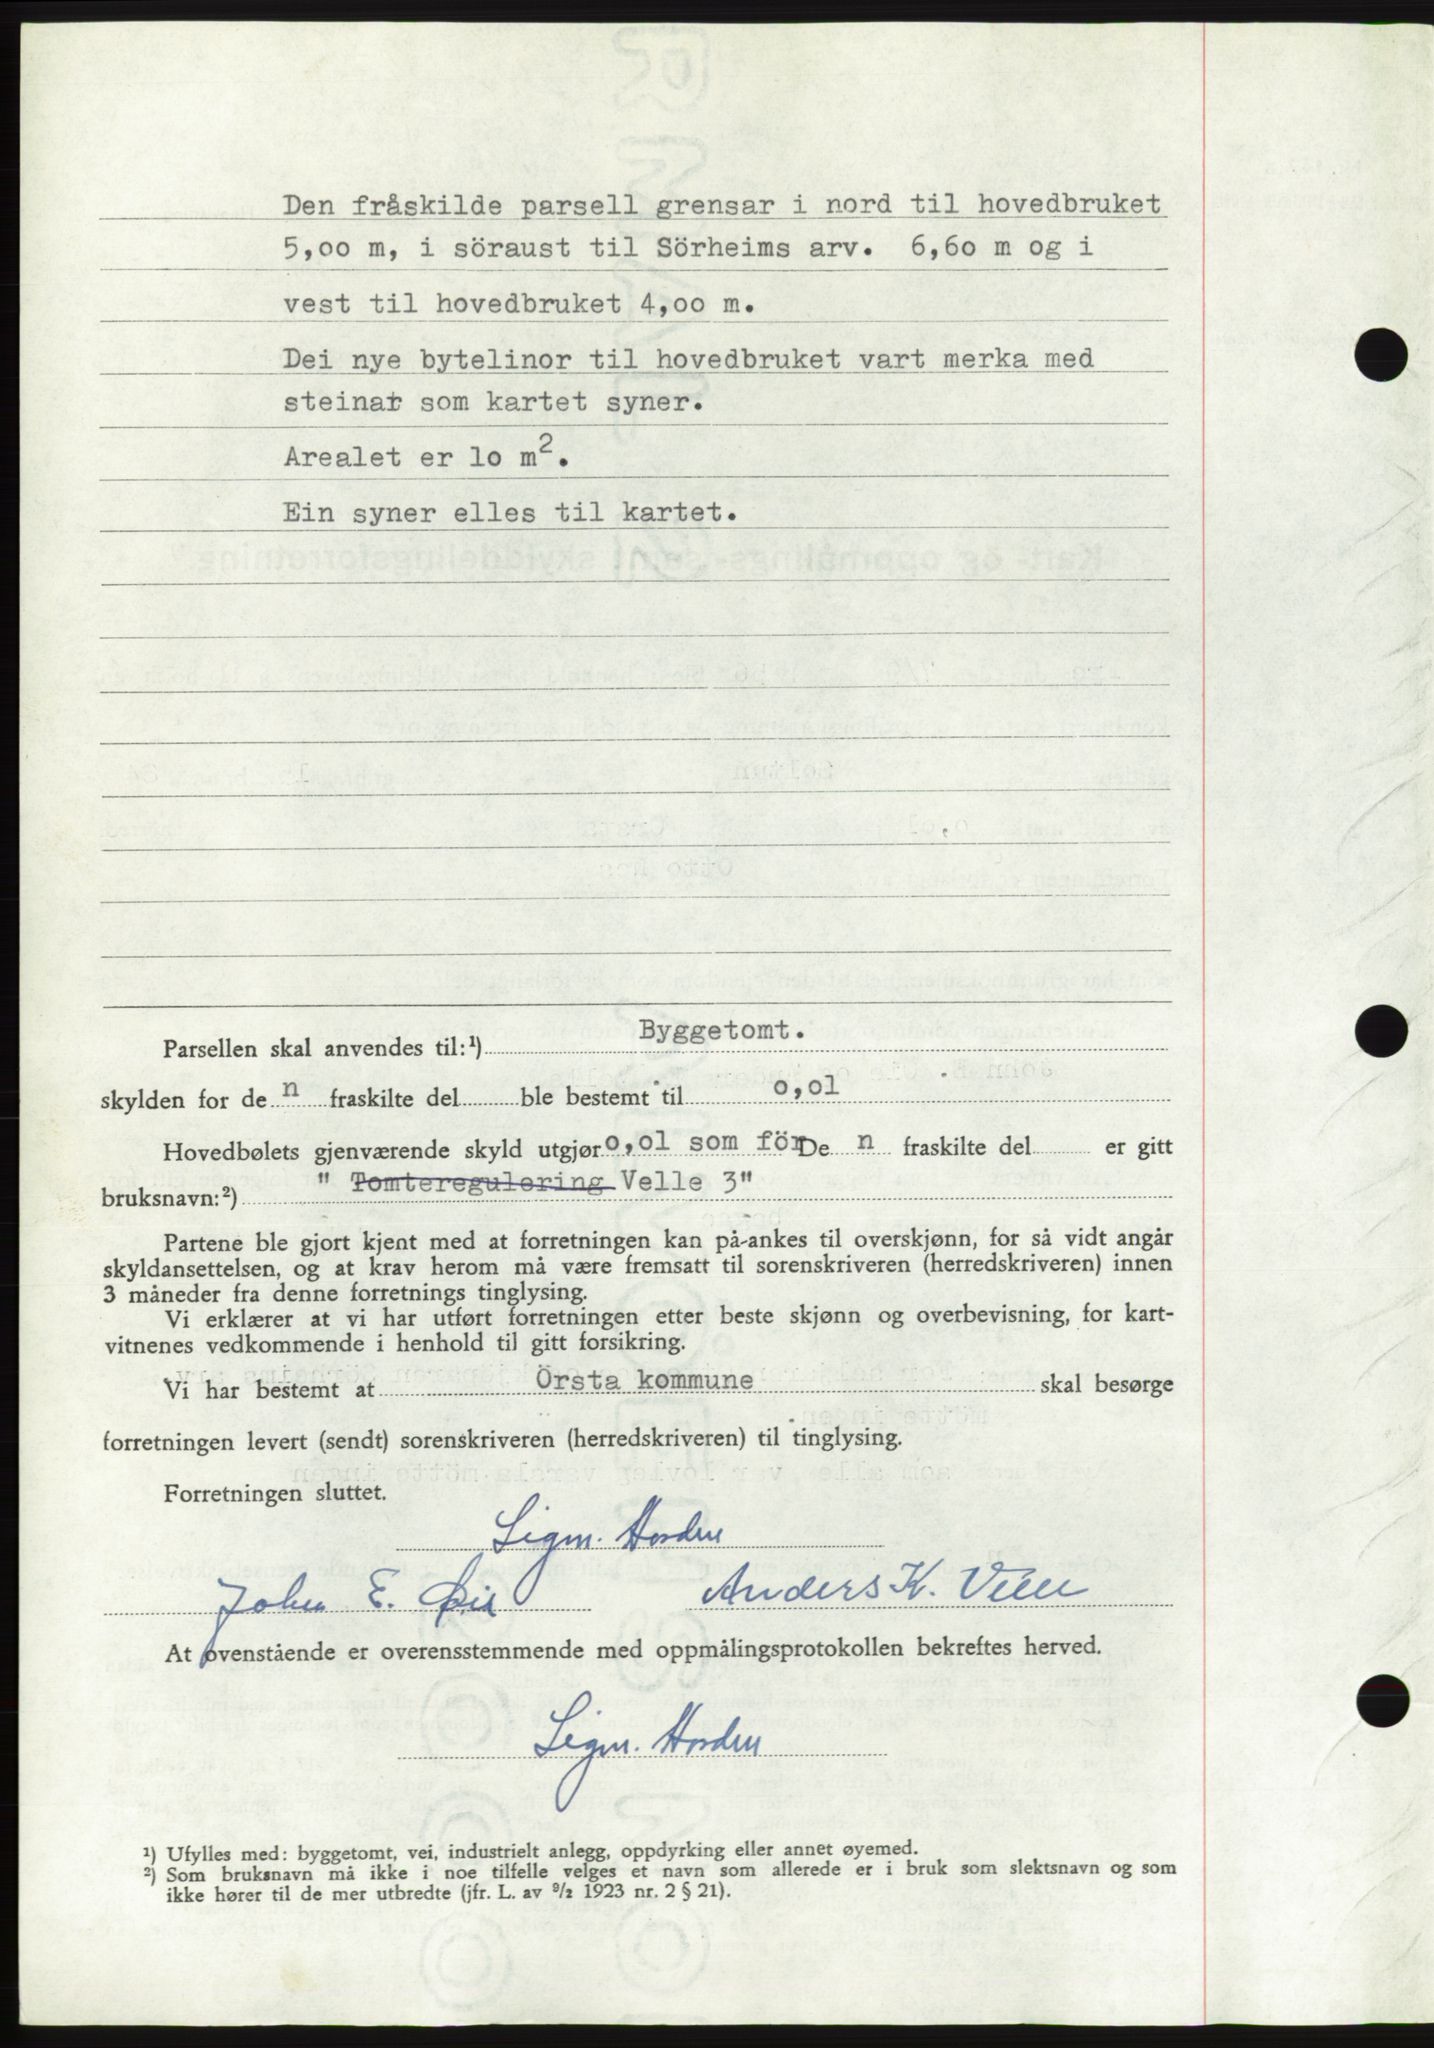 Den fråskilde parsell grensar i nord til hovedbruket
5,00 m, i söraust til Sörheims arv. 6,60 m og i
vest til hovedbruket 4,00 m.
Dei nye bytelinor til hovedbruket vart merka med
steinar som kartet syner.
Arealet er lo m2.
Ein syner elles til kartet.
Byggetomt.
Parsellen skal anvendes til:¹)
skylden for de n fraskilte del ble bestemt til o,ol
Hovedbølets gjenværende skyld utgjør o,ol som för De n fraskilte del er gitt
bruksnavn:²) " Tomteregulering Velle 3"
Partene ble gjort kjent med at forretningen kan på-ankes til overskjønn, for så vidt angår
skyldansettelsen, og at krav herom må være fremsatt til sorenskriveren (herredskriveren) innen
3 måneder fra denne forretnings tinglysing.
Vi erklærer at vi har utført forretningen etter beste skjønn og overbevisning, for kart-
vitnenes vedkommende i henhold til gitt forsikring.
Vi har bestemt at Örsta kommune skal besørge
forretningen levert (sendt) sorenskriveren (herredskriveren) til tinglysing.
Forretningen sluttet.
Sigm. Horden
John E. Anders K. Velle
At ovenstående er overensstemmende med oppmålingsprotokollen bekreftes herved.
Sigm. Horden
¹) Ufylles med: byggetomt, vei, industrielt anlegg, oppdyrking eller annet øyemed.
²) Som bruksnavn må ikke i noe tilfelle velges et navn som allerede er i bruk som slektsnavn og som
ikke hører til de mer utbredte (jfr. L. av 9/2 1923 nr. 2 § 21).